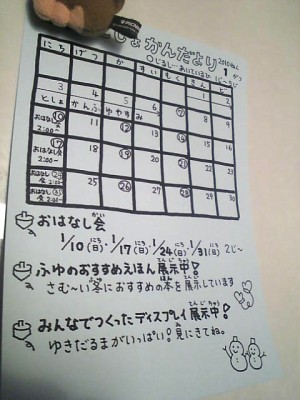 としょかんだより 2010ねん
1がつ
にち げつ か すい もく きん ど
1 2
3 4 5 6 ⑦ 8 9
としょかんふゆやすみ
⑩ 11 ⑫ 13 ⑭ 15 16
おはなし会
2:00〜
⑰ 18 ⑲ 20 ㉑ 22 23
おはなし会
2:00〜
おはなし会 2:00〜 25 ㉖ 27 ㉘ 29 30
おはなし会 2:00〜
おはなし会
1/10(日)・1/17(日)・1/24(日)・1/31(日) 2じ〜
ふゆのおすすめえほん展示中!
さむ〜い冬におすすめの本を展示しています
みんなでつくったディスプレイ展示中!
ゆきだるまがいっぱい!見にきてね。